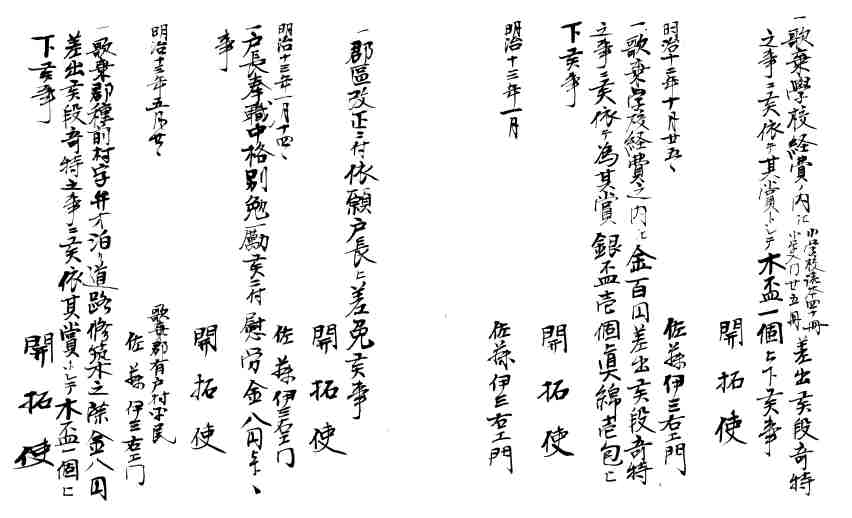 一歌棄学校経費ノ内ニ小学校読本四十冊小学入門廿五冊差出候段奇特
之事ニ候依テ其賞トシテ木盃一個下候事
開拓使
明治十二年十月廿五、
佐藤伊三右エ門
一歌棄学校経費之内ニ金百円差出候段奇特
之事ニ候依テ為其賞銀盃壱個真綿壱包ヒ
下候事
開拓使
明治十三年一月
佐藤伊三右エ門
一郡區改正ニ付依願戸長ヒ差免候事
開拓使
明治十三年一月十四、
佐藤伊三右エ門
一戸長奉職中格別勉励候ニ付慰労金八円、
事
開拓使
明治十三年五月廿、
歌棄郡有戸村平民
佐藤伊三右エ門
一歌棄郡種前村字弁才泊リ道路修築之際金八円
差出候段奇特之事ニ候依其賞トシテ木盃一個ヒ
下候事
開拓使